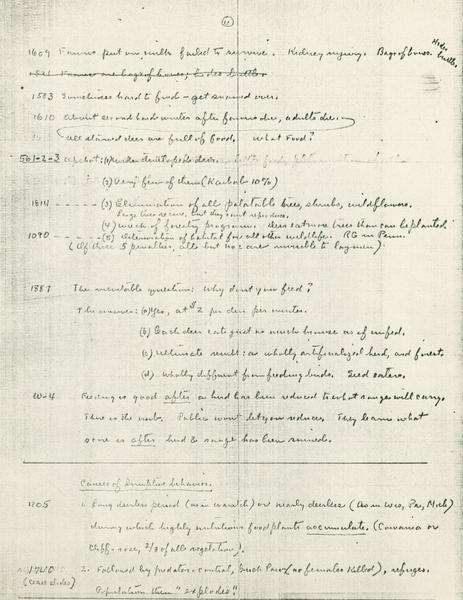 11
1609 Fawns put on milk failed to survive. Kidney injury. Bags of bones. Hides
brittle.
1583 Sometimes hard to find - get snowed over.
1610 About second hard winter after fawns die, adults die
All starved deer are full of food. What Food?
561-2-3 (1)
(2) Very few of them (Kaibab 10%)
1814 ----- (3) Elimination of all palatable trees, shrubs, wildflowers.
Large trees recover, but they don't reproduce.
(4) Wreck of forestry programs. Deer eat more trees than can be planted.
1090 ----- (5) Deterioration of habitat for all other wildlife. RG in Penn.
(Of these 5 penalties, all but no 2 are invisible to laymen)
1887 The inevitable question: Why don't you feed?
The answer: (a) Yes, at $2 per deer per winter.
(b) Each deer eats just as much browse as if unfed.
(c) Ultimate result: a wholly artificialized herd, and forest
(d) Wholly different from feeding birds. Seed eaters.
W-4 Feeding is good after a herd has been reduced to what range will carry.
There is the rub. Public won't let you reduce. They learn what
score is after herd & range has been ruined.
Causes of Irruptive behavior.
1205 1. Long deerless period (as in Wasatch) or nearly deerless (As in Wis, Pa, Mich)
during which highly nutritious food plants accumulate. (Cowania or
Cliff-rose, 2/3 of all vegetation).
1740 2. Followed by predator-control, buck laws (no females killed), refuges.
Population then "explodes".